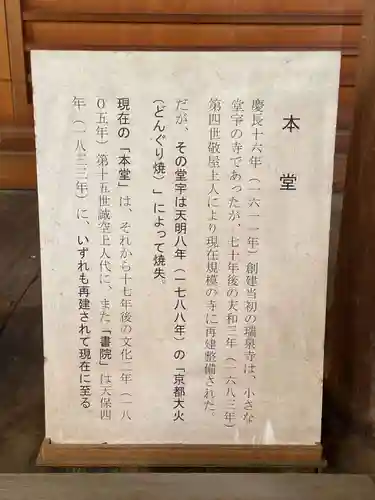 本堂
慶長十六年（一六一一年）創建当初の瑞泉寺は、小さな
堂宇の寺であったが、七十年後の天和三年（一六八三年）
第四世敬屋上人により現在規模の寺に再建整備された。
だが、その堂宇は天明八年（一七八八年）の「京都大火
（どんぐり焼）」によって焼失。
現在の「本堂」は、それから十七年後の文化二年（一八
０五年）第十五世誠空上人代に、また「書院」は天保四
年（一八三三年）に、いずれも再建されて現在に至る